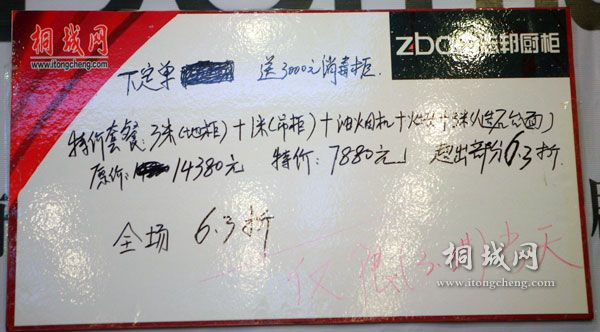 桐城网
www.itongcheng.com
zbo 邦厨柜
下定单 送3000元消毒柜.
特价套餐: 3米(地柜)+1米(吊柜)+油烟机+灶+3米(人造石台面)
原价: 14380元 特价: 7880元 超出部份6.3折
全场 6.3折
仅 当天
桐城网
www.itongcheng.com